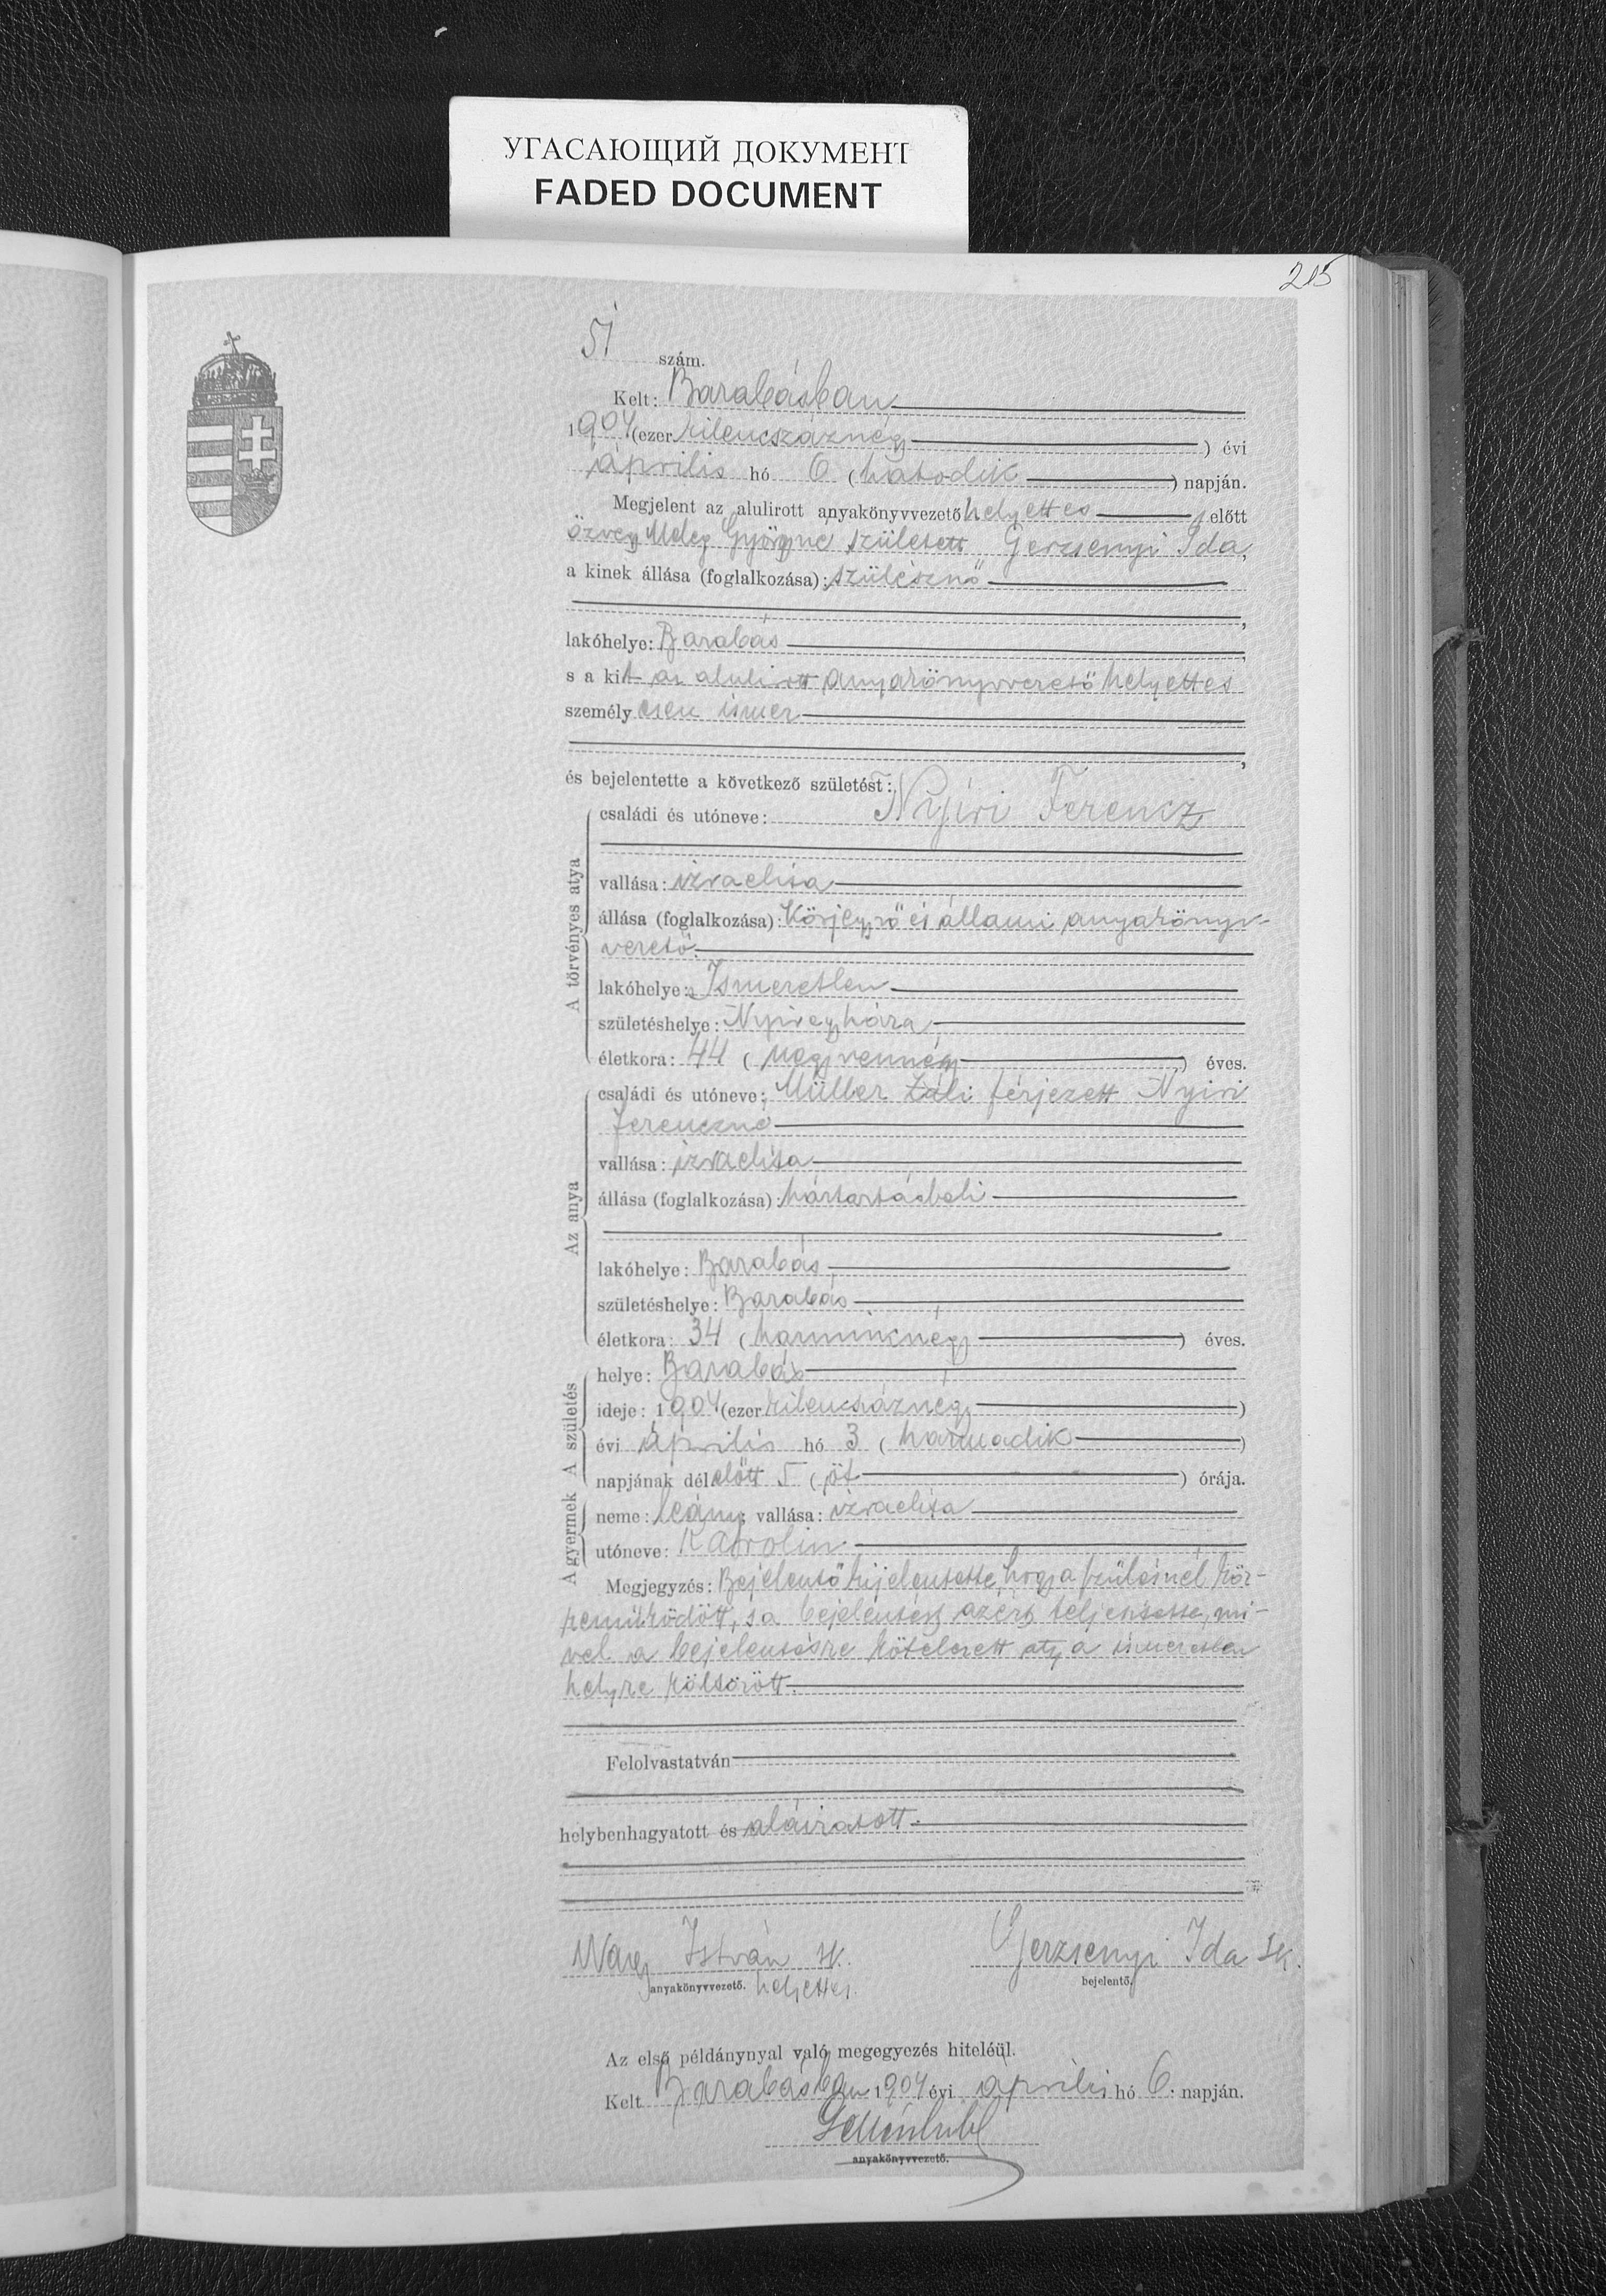 УГАСАЮЩИЙ ДОКУМЕНТ
FADED DOCUMENT
215
51 szám.
Kelt: Barabásban
1904 (ezer kilencszáznégy) évi
április hó 6 (hatodik) napján.
Megjelent az alulirott anyakönyvvezető helyettes előtt
özvegy Györgyné született Gerzsenyi Ida,
a kinek állása (foglalkozása): szülésznő
,
lakóhelye: Barabás,
s a kit az alulirott anyakönyvvezető helyettes
személyesen ismer
,
és bejelentette a következő születést:
A törvényes atya
családi és utóneve: Nyiri Ferencz
vallása: izraelita
állása (foglalkozása): Körjegyző és állami anyakönyv-
vezető
lakóhelye: Ismeretlen
születéshelye: Nyiregyháza
életkora: 44 (negyvennégy) éves.
Az anya
családi és utóneve: Müller Záli férjezett Nyiri
Ferenczné
vallása: izraelita
állása (foglalkozása): háztartásbeli
lakóhelye: Barabás
születéshelye: Barabás
életkora: 34 (harmincnégy) éves.
A születés
helye: Barabás
ideje: 1904 (ezer kilencszáznégy)
évi április hó 3 (harmadik)
napjának délelőtt 5 (öt) órája.
A gyermek
neme: leány vallása: izraelita
utóneve: Karolin
Megjegyzés: Bejelentő kijelentette, hogy a szülésnél köz-
remüködött, s a bejelentést azért teljesitette, mi-
vel a bejelentésre kötelezett atya ismeretlen
helyre költözött.
Felolvastatván
helybenhagyatott és aláiratott.
Nagy István sk. Gerzsenyi Ida sk.
anyakönyvvezető. helyettes. bejelentő.
Az első példánynyal való megegyezés hiteléül.
Kelt Barabásban 1904 évi április hó 6. napján.
anyakönyvvezető.